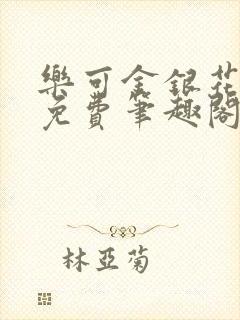 樂可金銀花
免費筆趣閣
林亞菊